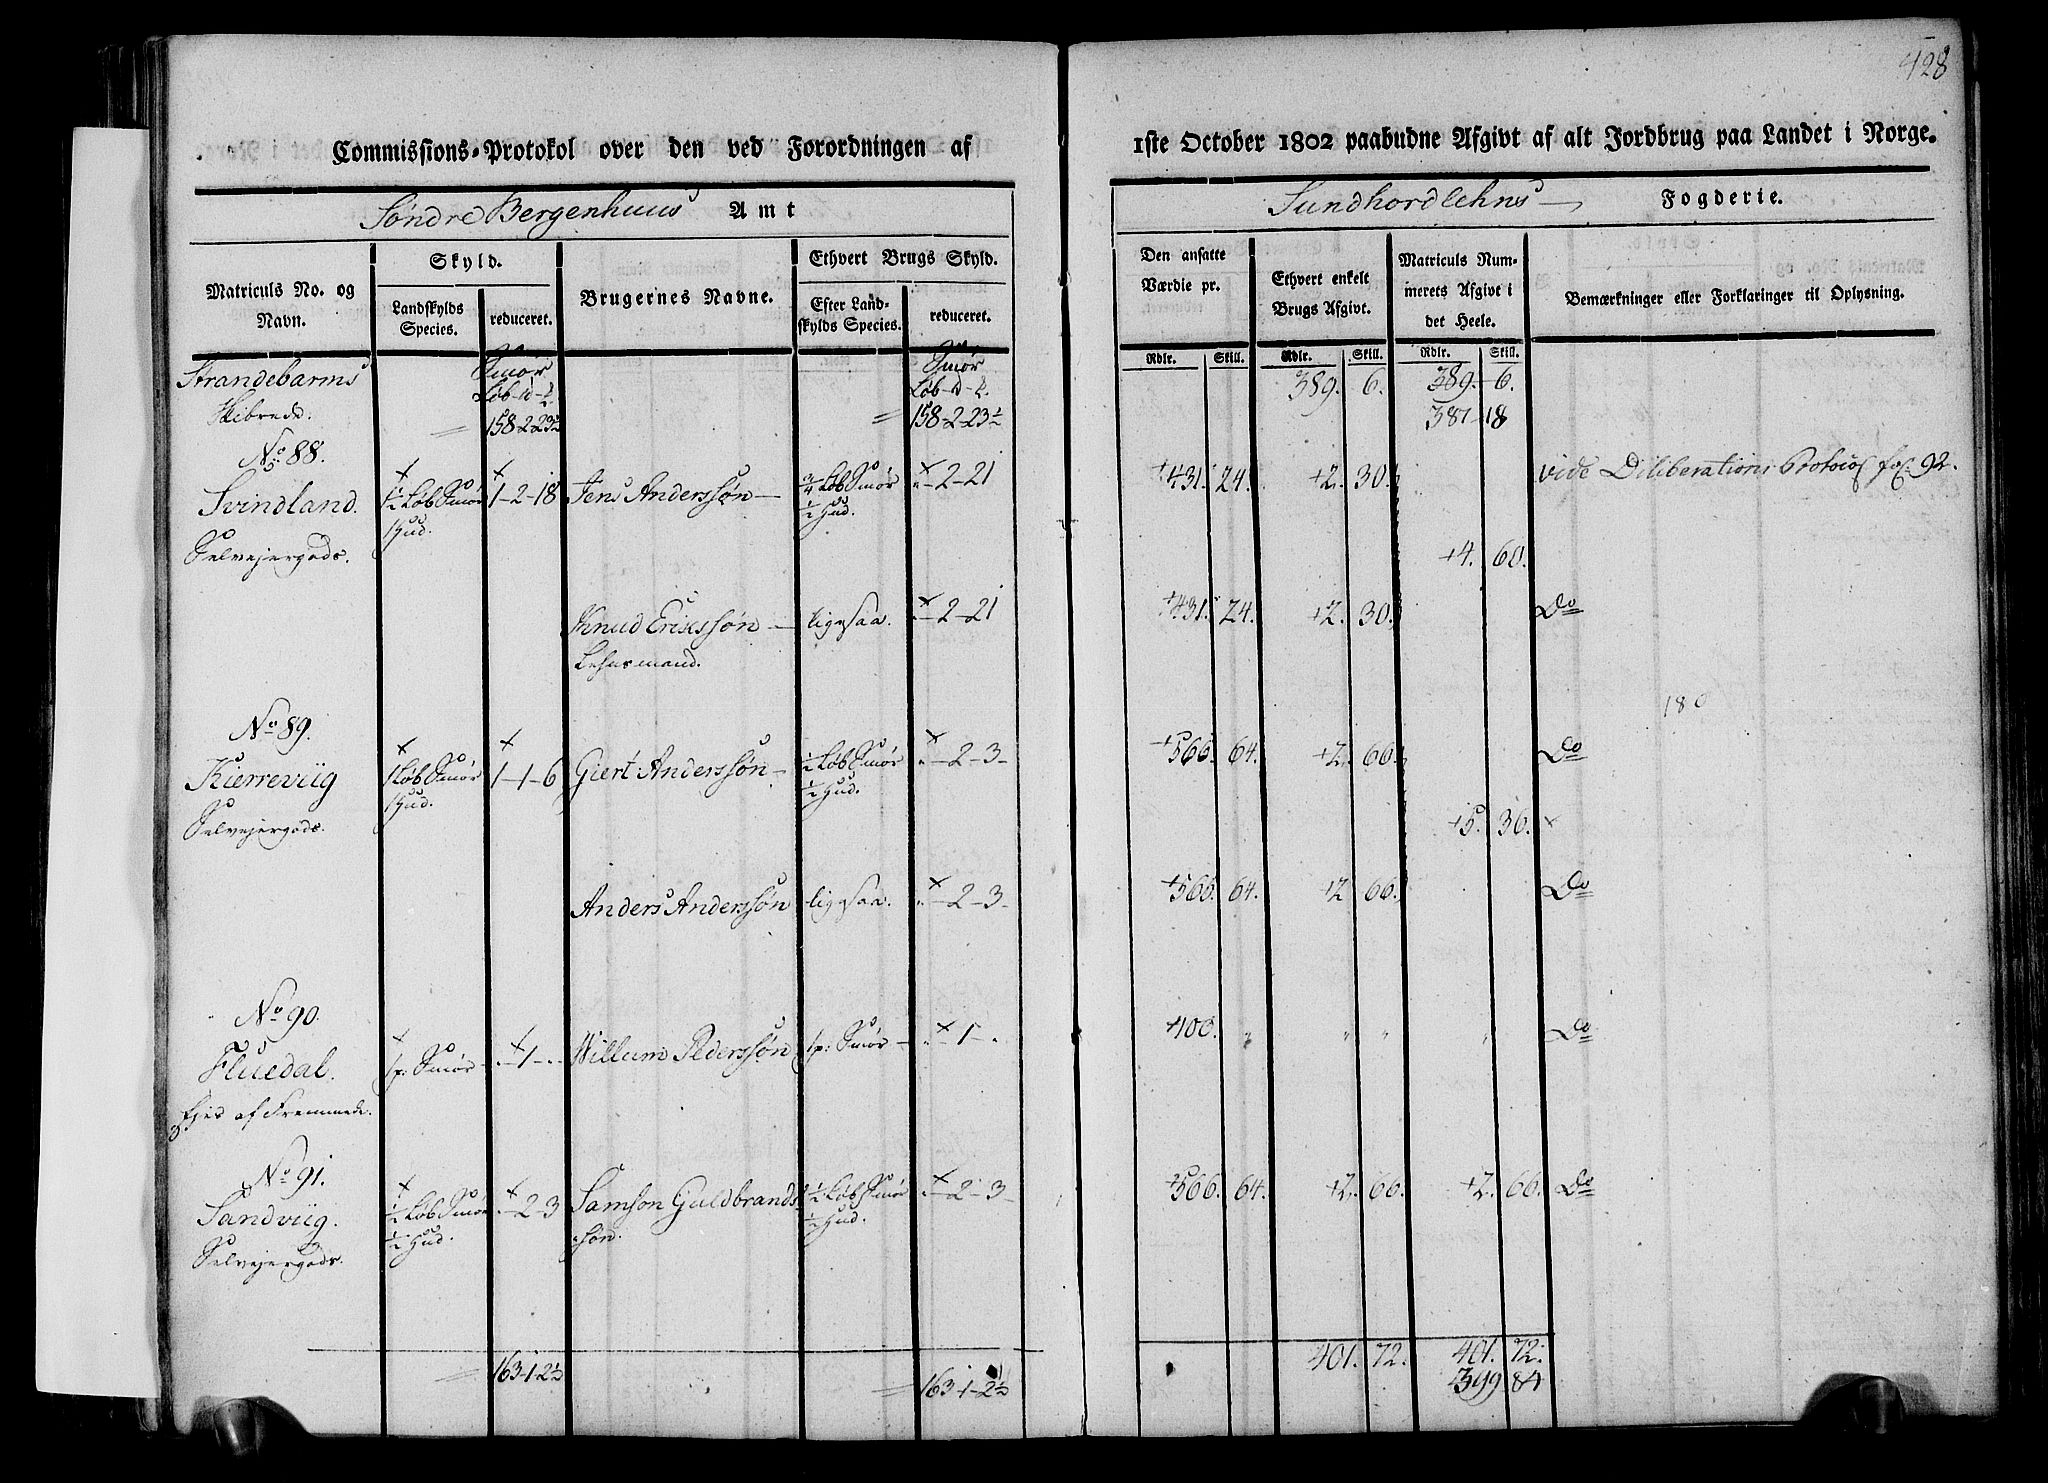 428
Commissions-Protokol over den ved Forordningen af
1ste October 1802 paabudne Afgivt af alt Jordbrug paa Landet i Norge.
Søndre Bergenhuus Amt
Sundhordlehns Fogderie.
Matriculs No. og Navn.
Skyld.
Landskylds Species.
reduceret.
Brugernes Navne.
Ethvert Brugs Skyld.
Efter Landskylds Species.
reduceret.
Den ansatte Værdie pr.
Ethvert enkelt Brugs Afgivt.
Matriculs Nummerets Afgivt i det Heele.
Bemærkninger eller Forklaringer til Oplysning.
Rdlr. Skill. Rdlr. Skill. Rdlr. Skill.
Strandebarms Smør Smør 389. 6. 389. 6.
Skibrede. Løb 158-2-23½ Løb 158-2-23½ 387 18
No 88.
Svindland. 1½ Løb Smør 1-2-18 Jens Anderssøn ¾ Løb Smør "-2-21 431. 24. 2. 30. vide Deliberations Protocol fol. 92.
1 Hud. ½ Hud.
Selvejergods. 4. 60.
Knud Erikssøn ligesaa. "-2-21 431. 24. 2. 30. Do
Lehnsmand.
No 89. 180
Kierreviig 1 Løb Smør 1-1-6 Giert Anderssøn ½ Løb Smør "-2-3 566. 64. 2. 66. Do
1 Hud. ½ Hud.
Selvejergods. 5. 36.
Anders Anderssøn ligesaa. "-2-3 566. 64. 2 66. Do
No 90.
Fluedal. 1 p: Smør "-1-" Willum Pederssøn 1 p: Smør "-1-" 100. " " " " Do
Ejes af Fremmede.
No 91.
Sandviig. ½ Løb Smør "-2-3 Samson Guldbrands ½ Løb Smør "-2-3 566. 64. 2. 66. 2. 66. Do
½ Hud. søn. ½ Hud.
Selvejergods.
163-1-2½ 163-1-2½ 401. 72. 401. 72.
399 84